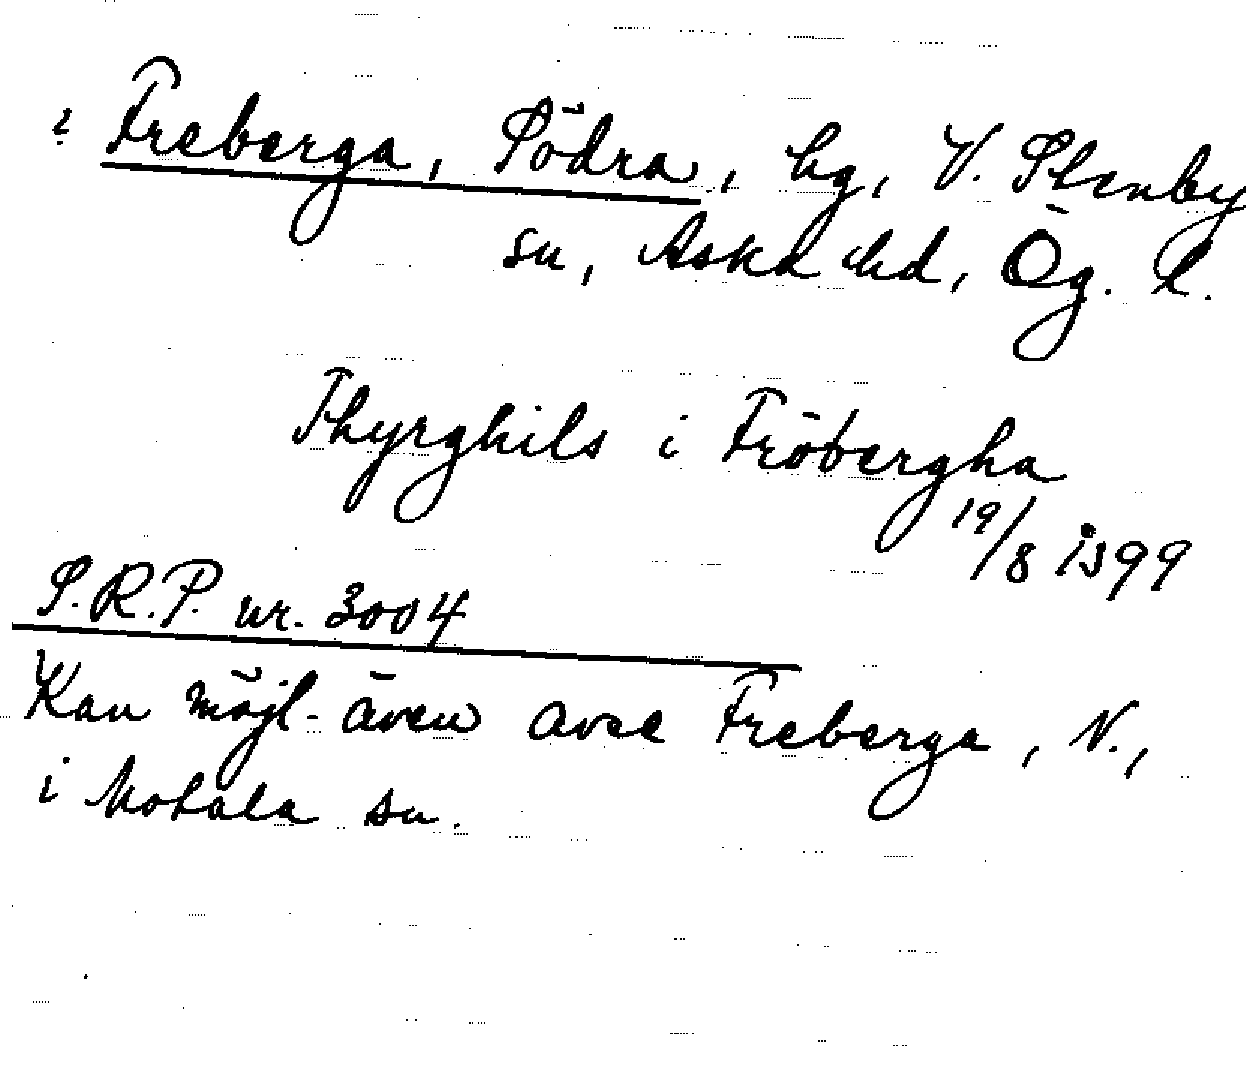 ? Freberga, Södra, by, V. Stenby
sn, Aska hd, Ög. l.
Thyrghils i Fröbergha
19/8 1399
S.R.P. nr. 3004
Kan möjl. även avse Freberga, N.,
i Motala sn.